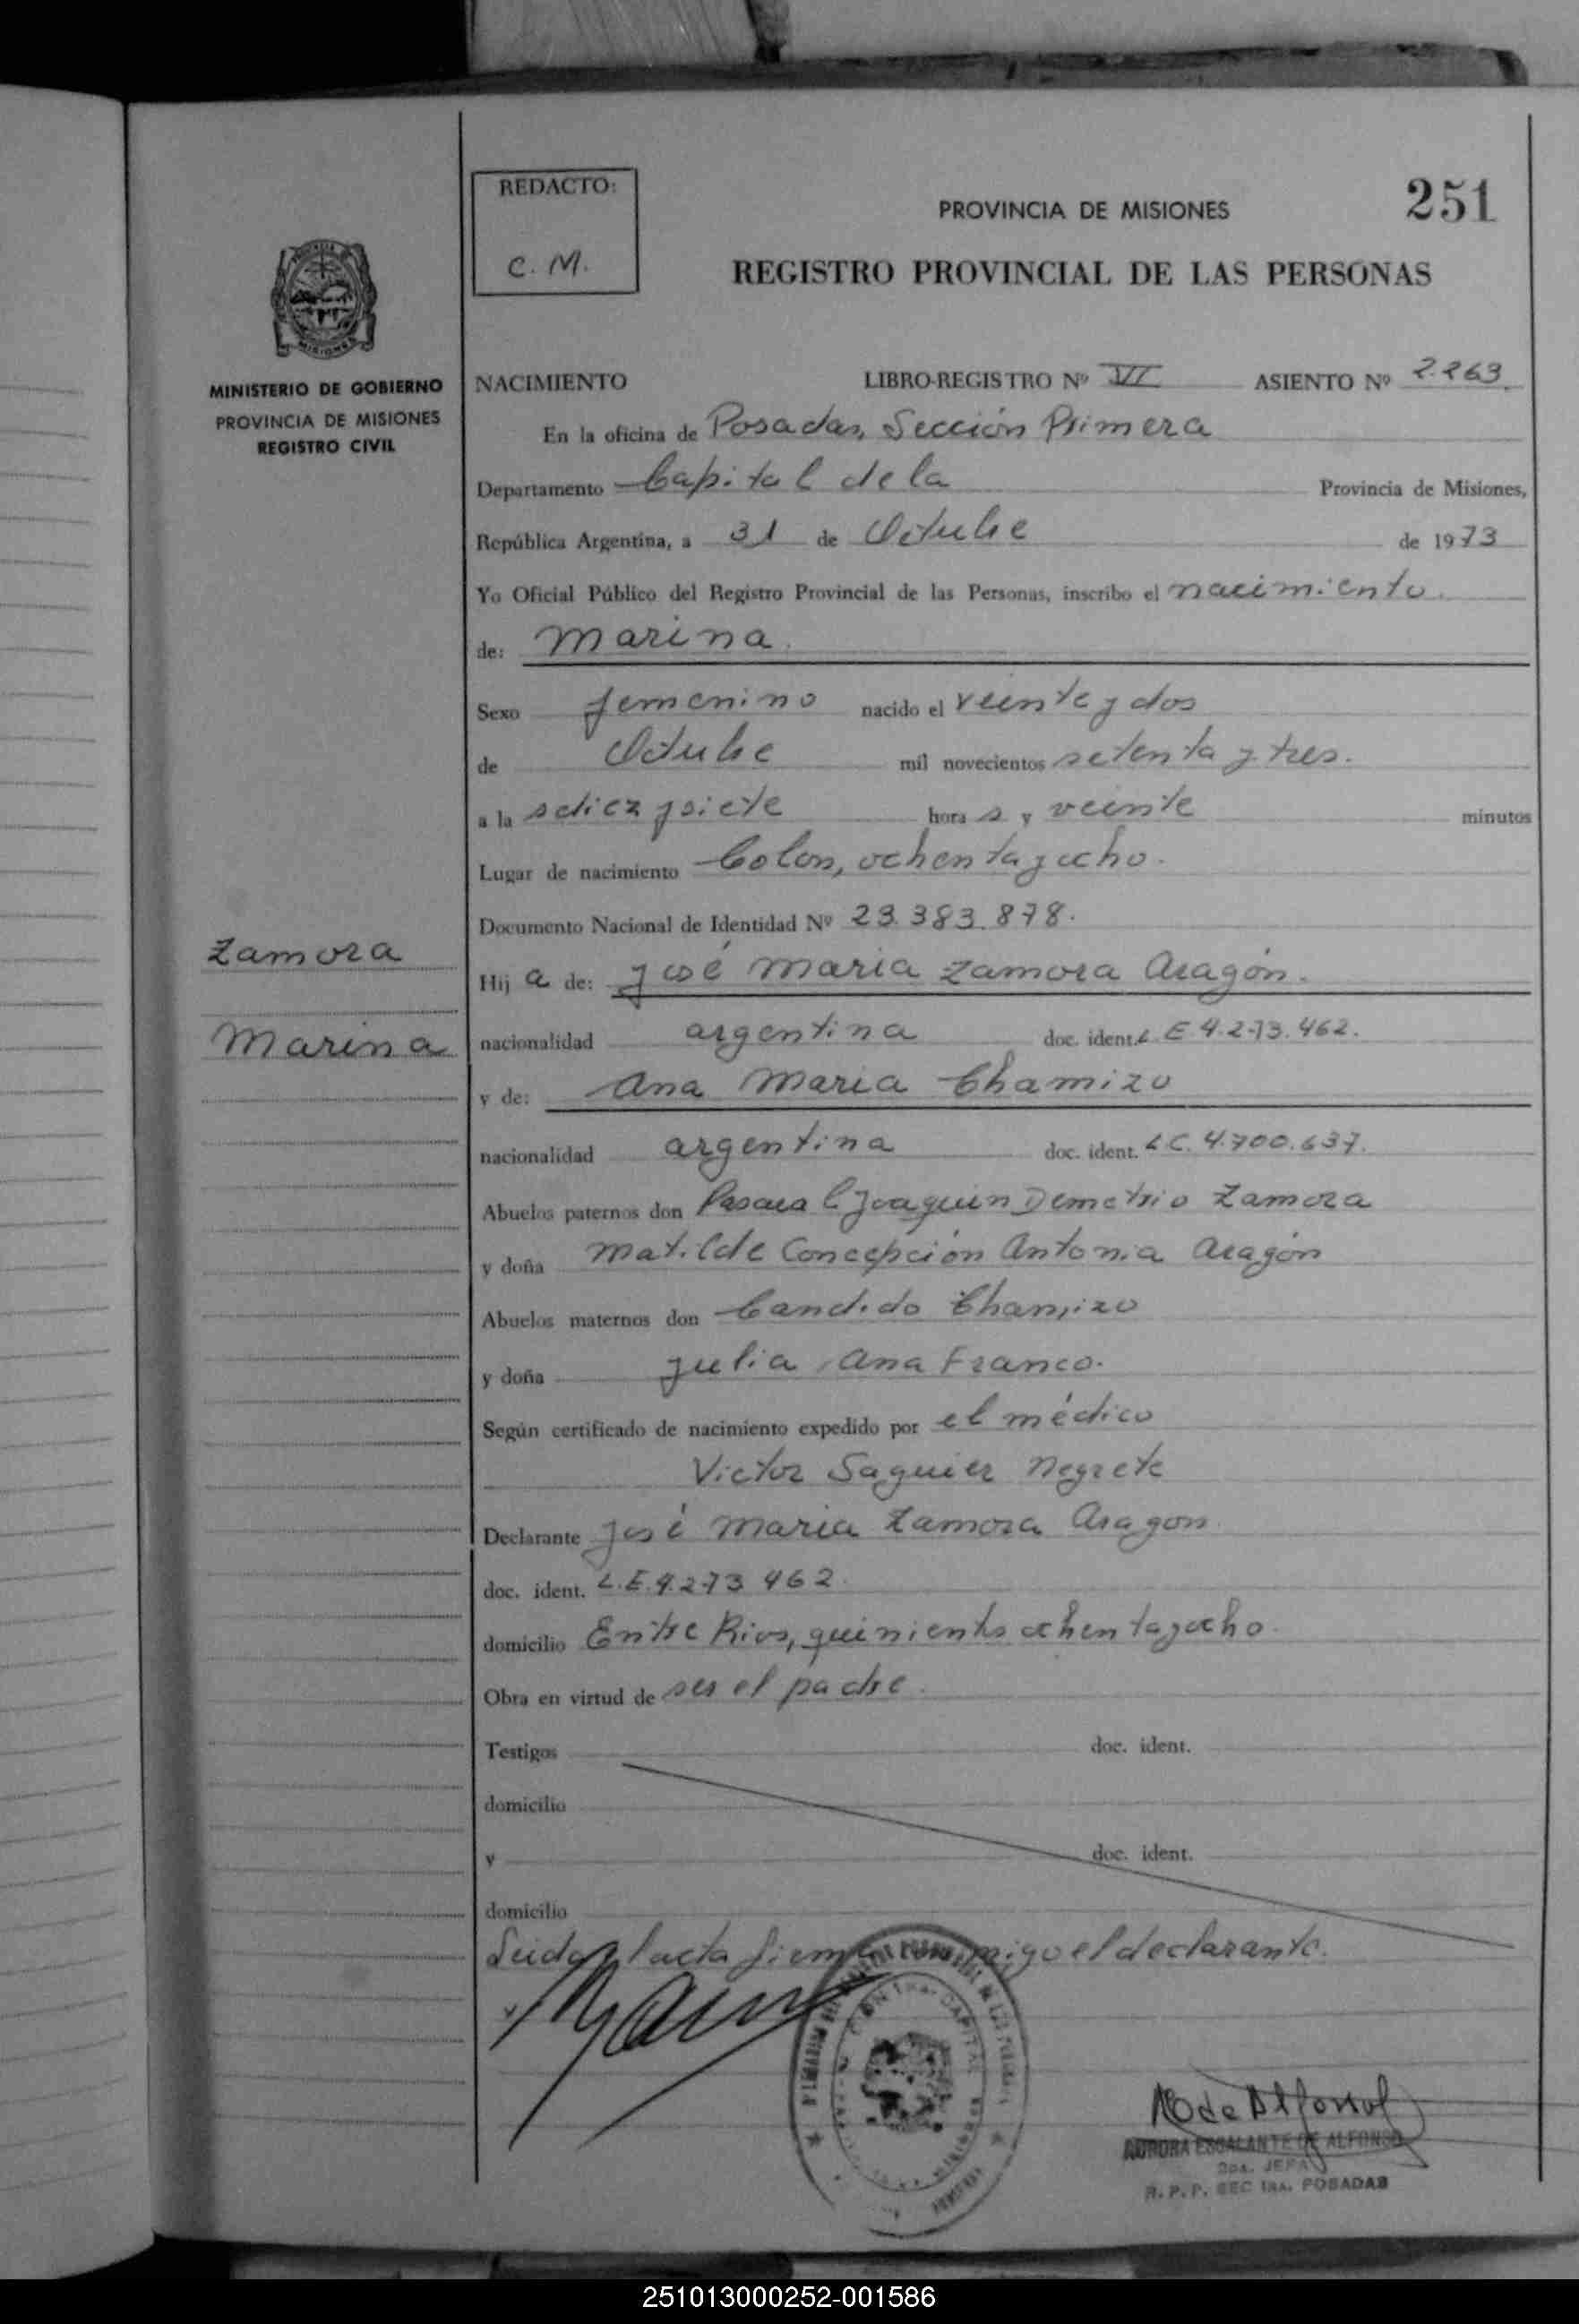 REDACTO:
C. M.
PROVINCIA DE MISIONES
251
REGISTRO PROVINCIAL DE LAS PERSONAS
MINISTERIO DE GOBIERNO
PROVINCIA DE MISIONES
REGISTRO CIVIL
NACIMIENTO LIBRO-REGISTRO Nº VI ASIENTO Nº 2.263
En la oficina de Posadas, Sección Primera
Departamento Capital de la Provincia de Misiones,
República Argentina, a 31 de Octubre de 1973
Yo Oficial Público del Registro Provincial de las Personas, inscribo el nacimiento.
de: Marina.
Sexo femenino nacido el veinte y dos
de Octubre mil novecientos setenta y tres.
a la s diez y siete hora s y veinte minutos
Lugar de nacimiento Colon, ochenta y ocho.
Documento Nacional de Identidad Nº 23.383.878.
Zamora
Hij a de: José Maria Zamora Aragón.
Marina
nacionalidad argentina doc. ident. L.E 4.273.462.
y de: Ana Maria Chamizo
nacionalidad argentina doc. ident. L C. 4.700.637.
Abuelos paternos don Joaquin Demetrio Zamora
y doña Matilde Concepción Antonia Aragón
Abuelos maternos don Candido Chamizo
y doña Julia Ana Franco.
Según certificado de nacimiento expedido por el médico
Victor Saguier Negrete
Declarante José Maria Zamora Aragon.
doc. ident. L.E.4.273 462.
domicilio Entre Rios, quinientos ochenta y ocho.
Obra en virtud de ser el padre.
Testigos doc. ident.
domicilio
y doc. ident.
domicilio
Leida el acta firma conmigo el declarante.
AURORA ESCALANTE DE ALFONSO
2DA. JEFA
R. P. P. SEC 1RA. POSADAS
251013000252-001586